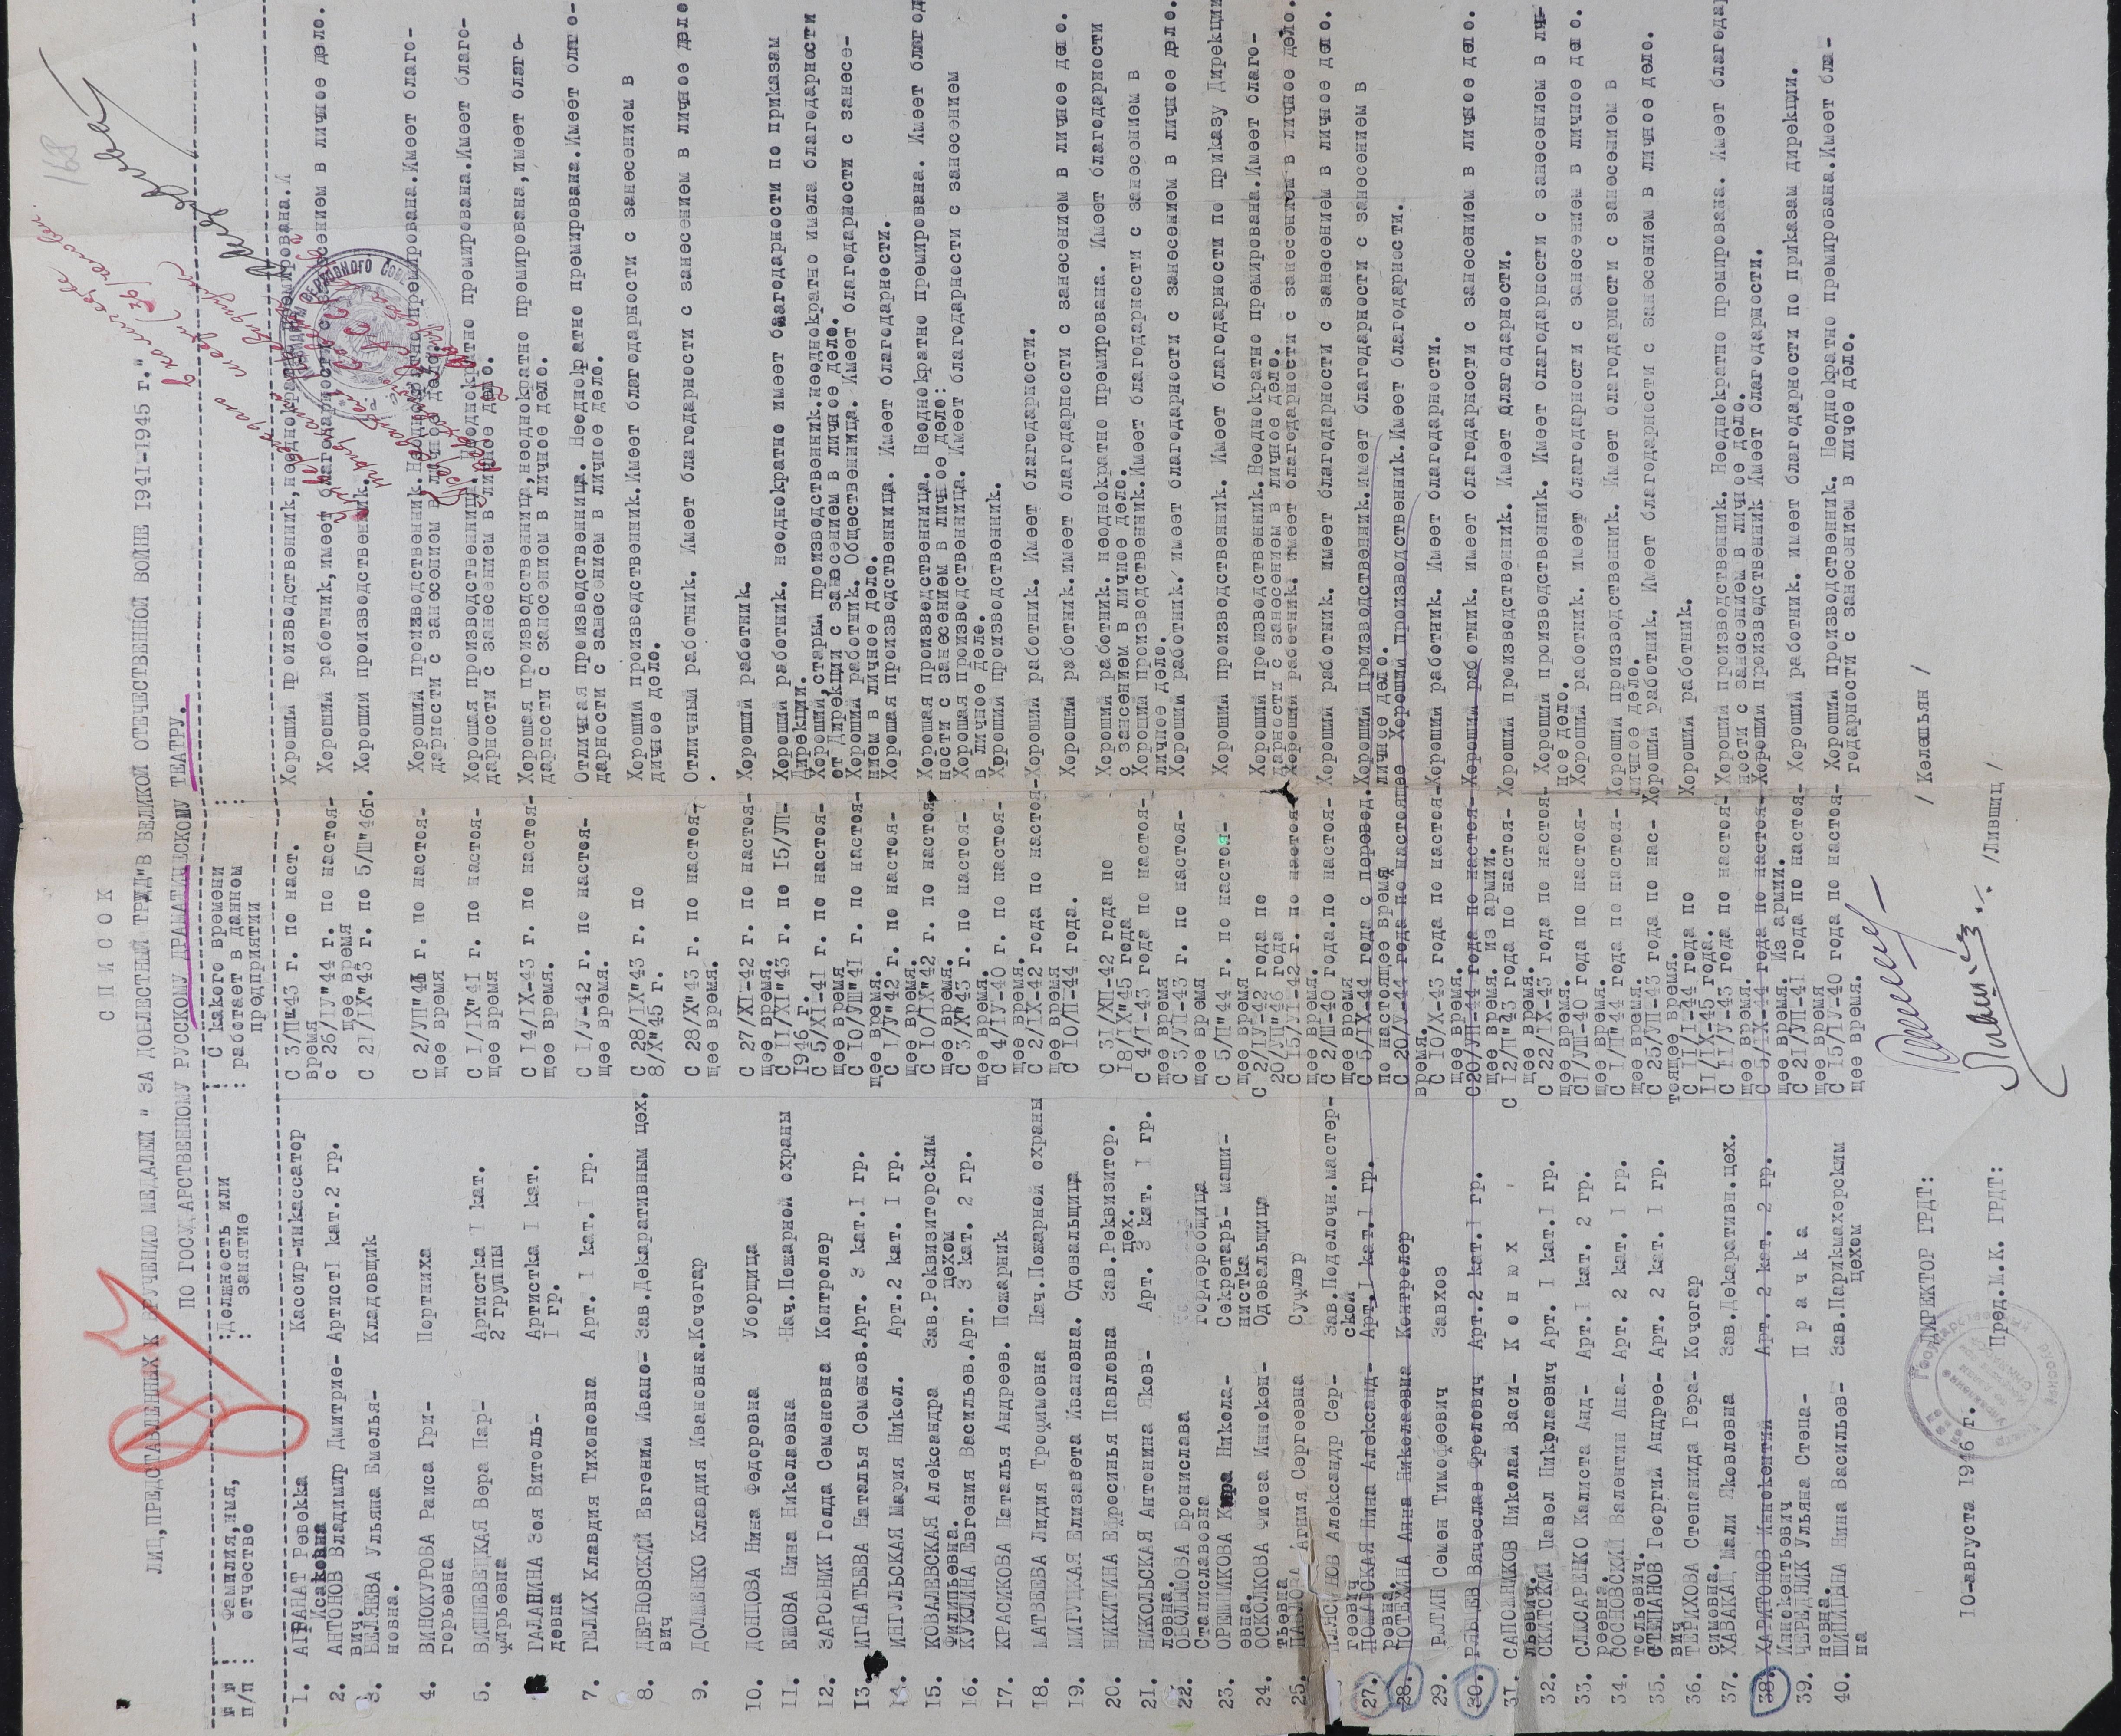 168
С П И С О К
ЛИЦ, ПРЕДСТАВЛЕННЫХ К ВРУЧЕНИЮ МЕДАЛЕЙ " ЗА ДОБЛЕСТНЫЙ ТРУД"В ВЕЛИКОЙ ОТЕЧЕСТВЕННОЙ ВОЙНЕ 1941-1945 г."
ПО ГОСУДАРСТВЕННОМУ РУССКОМУ ДРАМАТИЧЕСКОМУ ТЕАТРУ.
№ № : Фамилия,имя, : Должность или : С какого времени :
п/п : отчество : занятие : работает в данном :
предприятии
1. АГРАНАТ Ревекка Кассир-инкассатор С 3/П"43 г. по наст. Хороший производственник,неоднократно премирована.
Исаковна время
2. АНТОНОВ Владимир Дмитрие- Артист1 кат.2 гр. с 26/IУ"44 г. по настоя- Хороший работник,имеет благодарности с занесением в личное дело.
вич. щее время
3. БЕЛЯЕВА Ульяна Емелья- Кладовщик С 21/IX"43 г. по 5/Ш"46г. Хороший производственник.
новна.
4. ВИНОКУРОВА Раиса Гри- Портниха С 2/УП"41 г. по настоя- Хороший производственник. Неоднократно премирована.Имеет благо-
горьевна щее время дарности с занесением в личное дело.
5. ВИШНЕВЕЦКАЯ Вера Пар- Артистка I кат. С 1/IX"41 г. по настоя- Хорошая производственница. Неоднократно премирована.Имеет благо-
фирьевна 2 группы щее время. дарности с занесением в личное дело.
ГАЛАНИНА Зоя Витоль- Артистка I кат. С 14/IX-43 г. по настоя- Хорошая производственница,неоднократно премирована,имеет благо-
довна I гр. щее время. дарности с занесением в личное дело.
7. ГЕЛИХ Клавдия Тихоновна Арт. I кат.I гр. С 1/У-42 г. по настоя- Отличная производственница. Неоднократно премирована.Имеет благо-
щее время. дарности с занесением в личное дело.
8. ДЕРНОВСКИЙ Евгений Ивано- Зав.Декаративным цех. С 28/IX"43 г. по Хороший производственник.Имеет благодарности с занесением в
вич 8/X"45 г. личное дело.
9. ДОЛЖЕНКО Клавдия Ивановна.Кочегар С 28/X"43 г. по настоя- Отличный работник. Имеет благодарности с занесением в личное дело
щее время.
10. ДОНЦОВА Нина Федоровна Уборщица С 27/XI-42 г. по настоя- Хороший работник.
щее время.
11. ЕШОВА Нина Николаевна Нач.Пожарной охраны С 11/XI"43 г. по 15/УП- Хороший работник. неоднократно имеет благодарности по приказам
1946 г. Дирекции.
12. ЗАРОВНИК Голда Семеновна Контролер С 5/XI-41 г. по настоя- Хороший,старый производственник.неоднократно имела благодарности
щее время от Дирекции с занесением в личное дело.
13. ИГНАТЬЕВА Наталья Семенов.Арт. 3 кат.I гр. С 10/УШ"41 г. по настоя- Хороший работник. Общественница. Имеет благодарности с занесе-
щее время. нием в личное дело.
14. ИНГУЛЬСКАЯ Мария Никол. Арт.2 кат. I гр. С 1/У"42 г. по настоя- Хорошая производственница. Имеет благодарности.
щее время.
15. КОВАЛЕВСКАЯ Александра Зав.Реквизиторским С 10/IX"42 г. по настоя Хорошая производственница. Неоднократно премирована. Имеет благод
Филипьевна. цехом щее время. ности с занесением в личное дело:
16. КУКЛИНА Евгения Васильев.Арт. 3 кат. 2 гр. С 3/X"43 г. по настоя- Хорошая производственница. Имеет благодарности с занесением
щее время. в личное дело.
17. КРАСИКОВА Наталья Андреев. Пожарник С 4/IУ-40 г. по настоя- Хороший производственник.
щее время
18. МАТВЕЕВА Лидия Трофимовна Нач.Пожарной охраны С 2/IX-42 года по настоя-Хороший работник. Имеет благодарности.
щее время.
19. МИГУЦКАЯ Елизавета Ивановна. Одевальщица С 10/П-44 года. Хороший работник.имеет благодарности с занесением в личное дело.
20. НИКИТИНА Ефросинья Павловна Зав.Реквизитор. С 31/XП-42 года по Хороший работник. неоднократно премирована. Имеет благодарности
цех. 18/IX"45 года с зансением в личное дело.
21. НИКОЛЬСКАЯ Антонина Яков- Арт. 3 кат. I гр. С 4/I-43 года по настоя- Хороший производственник.Имеет благодарности с занесением в
левна. щее время личное дело.
22. ОБОЛЬМОВА Бронислава гордеробщица С 3/УI-43 г. по настоя- Хороший работник. имеет благодарности с занесением в личное дело.
Станиславовна щее время
23. ОРЕШНИКОВА Кира Никола- Секретарь- маши- С 5/П"44 г. по настоя- Хороший производственник. Имеет благодарности по приказу Дирекции
евна. нистка щее время
24. ОСКОЛКОВА Фиоза Иннокен- Одевальщица С 2/IУ-42 года по Хороший производственник.Неоднократно премирована.Имеет благо-
тьевна 20/УП"46 года дарности с занесением в личное дело.
25. ПАВЛОВА Агния Сергеевна Суфлер С 15/УI-42 г. по настоя- Хороший работник. имеет благодарности с занесением в личное дело.
щее время.
Александр Сер- Зав.Поделочн.мастер- С 2/Ш-40 года.по настоя- Хороший работник. имеет благодарности с занесением в личное дело.
геевич ской щее время
27. ПОЖАРСКАЯ Нина Александ- Арт. I кат.I гр. С 5/IX-44 года с перевод.Хороший производственник.имеет благодарности с занесением в
ровна. по настоящее время личное дело.
28. ПОТЕХИНА Анна Николаевна Контролер С 20/У-44 года по настоящее Хороший производственник.Имеет благодарности.
время.
29. РОТИН Семен Тимофеевич Завхоз С 10/X-43 года по настоя-Хороший работник. Имеет благодарности.
щее время.
30. РЯБЦЕВ Вячеслав Фролович Арт.2 кат.I гр. С20/УП-44 года по настоя- Хороший работник. имеет благодарности с занесением в личное дело.
щее время. из армии.
31. САПОЖНИКОВ Николай Васи- К о н ю х С 12/П"43 года по настоя- Хороший производственник. Имеет благодарности.
льевич. щее время.
32. СКИТСКИЙ Павел Николаевич Арт. I кат.I гр. С 22/IX-43 года по настоя- Хороший производственник. Имеет благодарности с занесением в лич-
щее время. ное дело.
33. СЛЮСАРЕНКО Калиста Анд- Арт.I кат. 2 гр. С1/УШ-40 года по настоя- Хороший работник. имеет благодарности с занесением в личное дело.
реевна. щее время.
34. СОСНОВСКИЙ Валентин Ана- Арт. 2 кат. I гр. С 1/П"44 года по настоя- Хороший производственник. Имеет благодарности с занесением в
тольевич. щее время. личное дело.
35. СТЕПАНОВ Георгий Андрее- Арт. 2 кат. I гр. С 25/УП-43 года по нас- Хороший работник. Имеет благодарности с занесением в личное дело.
вич тоящее время.
36. ТЕРИХОВА Степанида Гера- Кочегар С 11/I-44 года по Хороший работник.
симовна. 11/IX-45 года.
37. ХАВАКАЦ Мали Яковлевна Зав.Декаративн.цех. С 11/У-43 года по настоя- Хороший производственник. Неоднократно премирована. Имеет благода
щее время. ности с занесением в личное дело.
38. ХАРИТОНОВ Иннокентий Арт. 2 кат. 2 гр. С 5/IX-44 года по настоя- Хороший производственник Имеет благодарности.
Иннокентьевич щее время. Из армии.
39. ЧЕРЕДНИК Ульяна Степа- П р а ч к а С 21/УП-41 года по настоя- Хороший работник. имеет благодарности по приказам дирекции.
новна. щее время
40. ШИПИЦЫНА Нина Васильев- Зав.Парикмахерским С 15/IУ-40 года по настоя- Хороший производственник. Неоднократно премирована.Имеет бла-
на цехом щее время. годарности с занесением в личное дело.
ДИРЕКТОР ГРДТ: / Келешьян /
10-августа 1946 г. Пред.М.К. ГРДТ: /Лившиц /